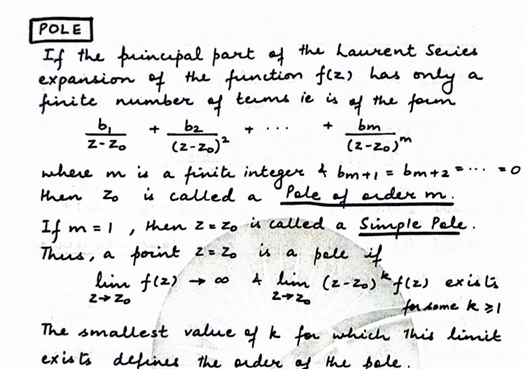 POLE
If the principal part of the Laurent Series
expansion of the function f(z) has only a
finite number of terms ie is of the form
b₁/(z-z₀) + b₂/(z-z₀)² + ··· + bm/(z-z₀)^m
where m is a finite integer & bm+1 = bm+2 = ··· = 0
then z₀ is called a Pole of order m.
If m = 1, then z = z₀ is called a Simple Pole.
Thus, a point z = z₀ is a pole if
lim z→z₀ f(z) → ∞ & lim z→z₀ (z-z₀)^k f(z) exists
for some k ≥ 1
The smallest value of k for which this limit
exists defines the order of the pole.